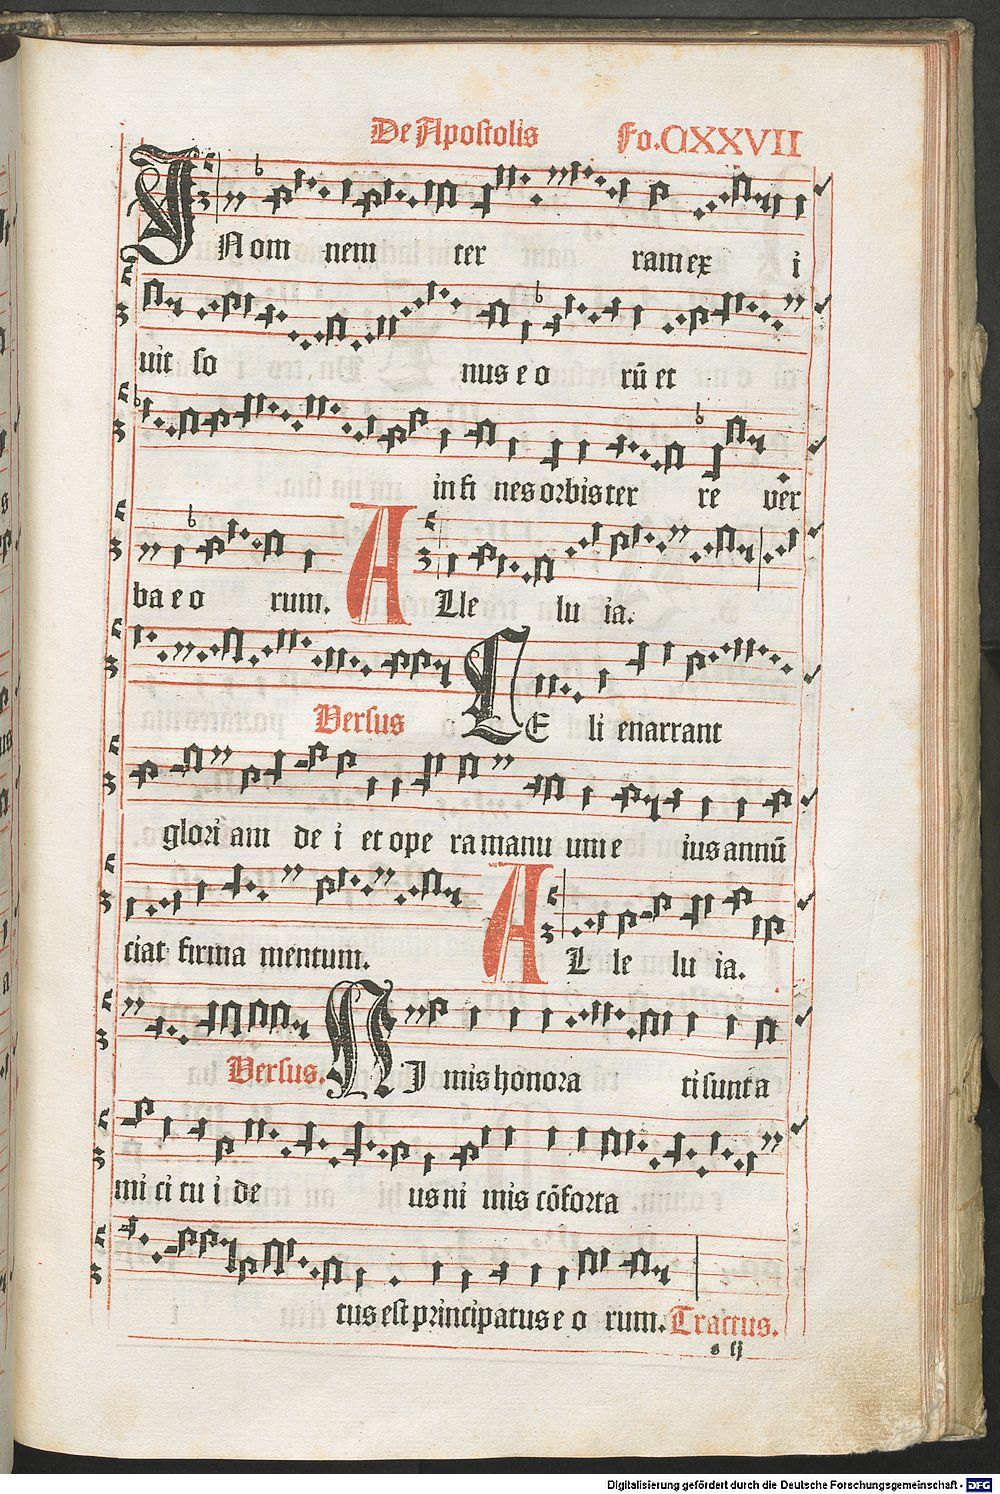 De Apostolis Fo. CXXVII
IN om nem ter ram ex i
uit so nus e o rū et
in fi nes orbis ter re ver
ba e o rum. A Lle lu ia.
Versus CE li enarrant
glori am de i et ope ra manu um e ius annū
ciat firma mentum. A L le lu ia.
Versus. NI mis honora ti sunt a
mi ci tu i de us ni mis cōforta
tus est principatus e o rum. Tractus.
s ij
Digitalisierung gefördert durch die Deutsche Forschungsgemeinschaft - DFG